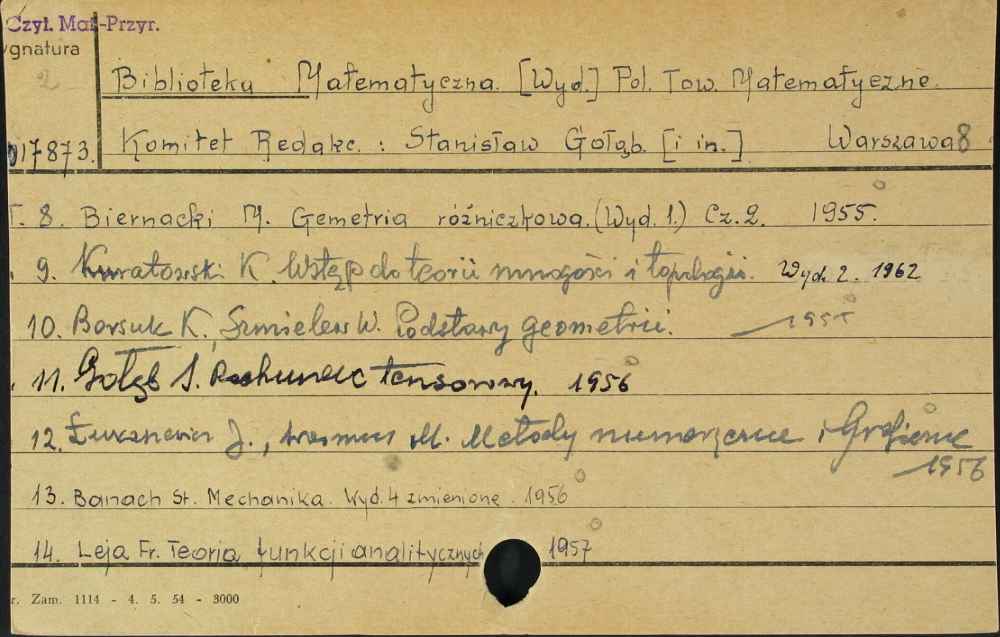 Czyt. Mat-Przyr.
ygnatura
2
Biblioteka Matematyczna. [Wyd.] Pol. Tow. Matematyczne.
17873. Komitet Redakc. : Stanisław Gołąb. [i in.] Warszawa 8
T. 8. Biernacki M. Gemetria różniczkowa. (Wyd. 1.) Cz. 2. 1955.
9. Kuratowski K. Wstęp do teorii mnogości i topologii. Wyd. 2. 1962
10. Borsuk K., Szmielew W. Podstawy geometrii. 1955
11. Gołąb S. Rachunek tensorowy. 1956
12. Łukaszewicz J., Warmus M. Metody numeryczne i Graficzne
1956
13. Banach St. Mechanika. Wyd. 4 zmienione. 1956
14. Leja Fr. Teoria funkcji analitycznych 1957
r. Zam. 1114 - 4. 5. 54 - 3000